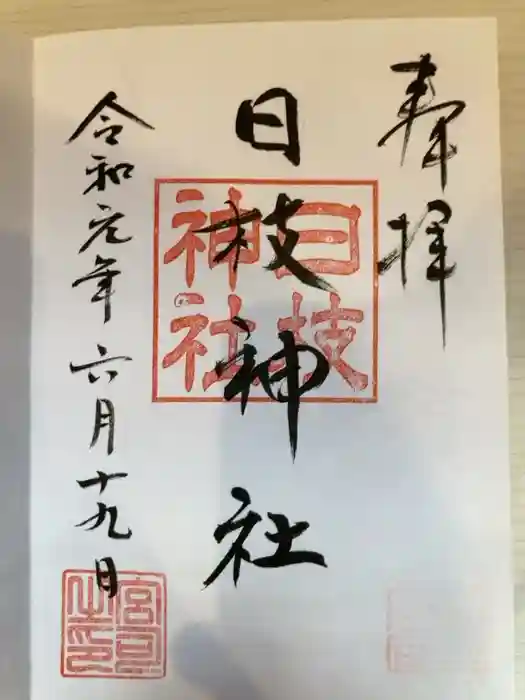 奉拝
日枝神社
日枝神社
令和元年六月十九日
宮司之印